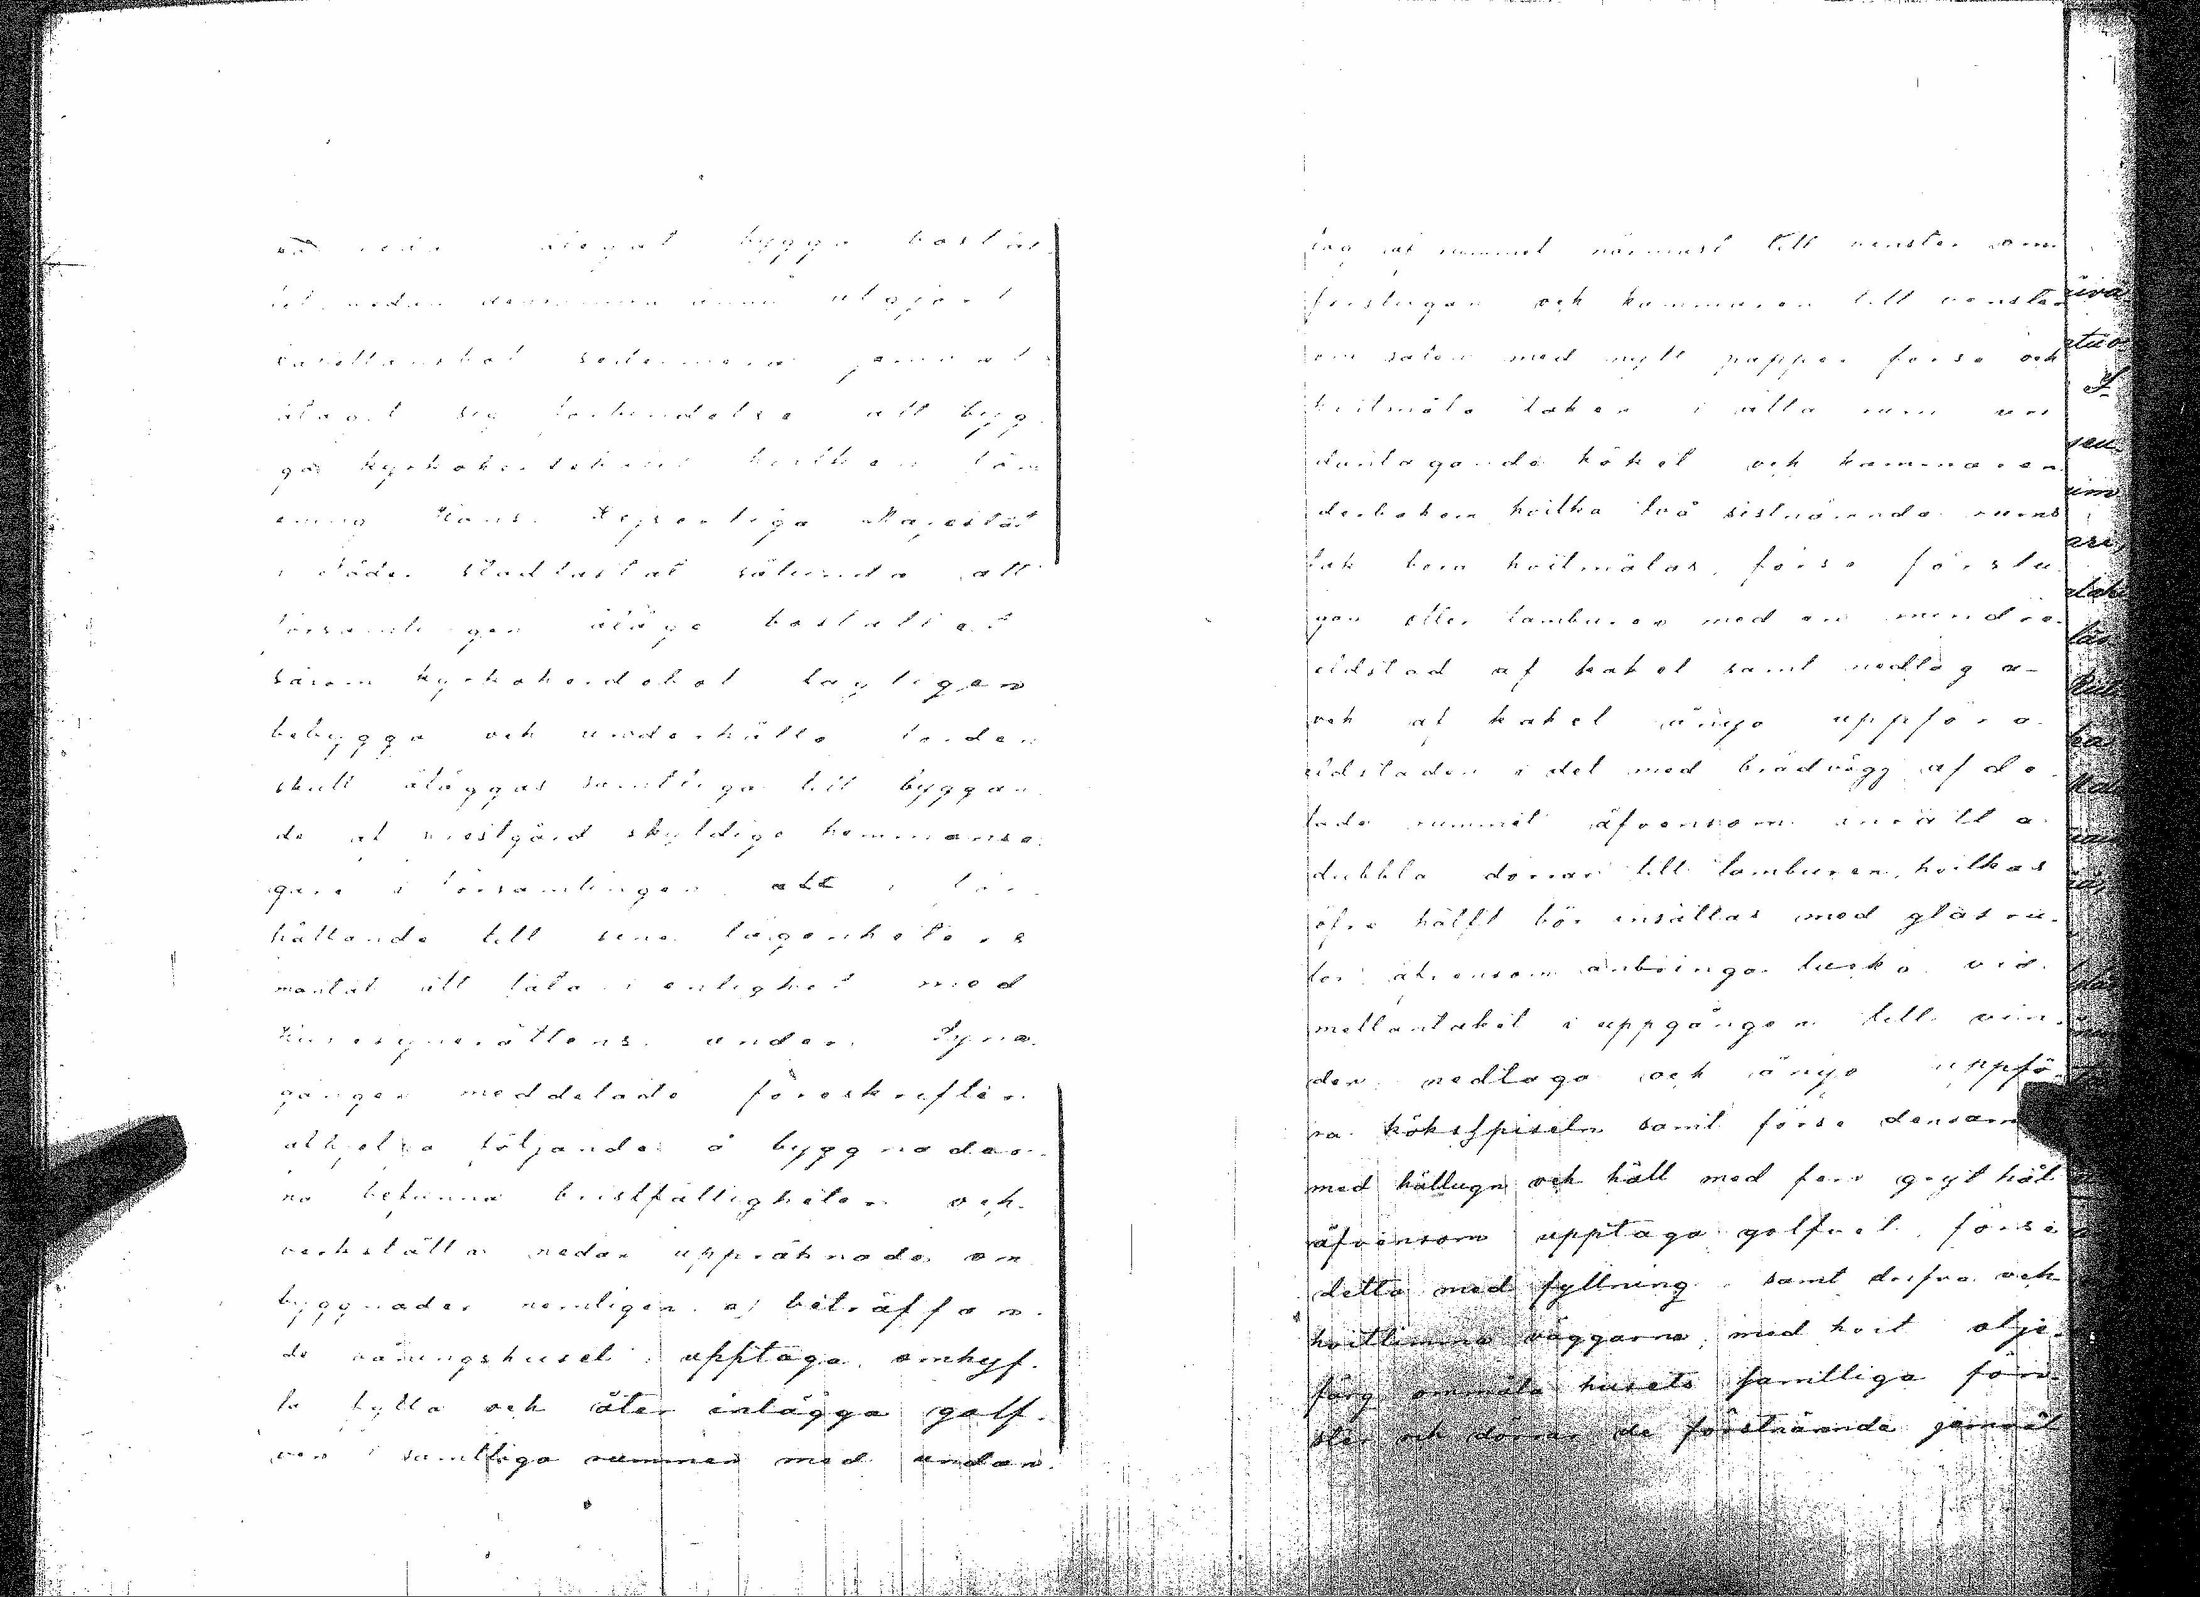 bygga bostäl-
let, sedan densamma ännu utgjort
kapellansbol sedermera jemväl
åtagit sig förbindelse att byg-
ga kyrkoherdebol hvilken
Hans Kejserliga Majestät
i Nåder stadfästat sålunda att
församlingen ålåge bostället
såsom kyrkoherdebol lagligen
bebygga och underhålla
skull åläggas samtliga till byggan-
de af prestgård skyldige hemmansä-
gare i församlingen att i för-
hållande till sina lägenheters
mantal att låta i enlighet med
Husesynerättens under Syne-
gången meddelade föreskrifter
afhjelpa följande å byggnader-
na befunna bristfälligheter och
verkställa nedan uppräknade om-
byggnader nemligen: a) beträffan-
de våningshuset: upptaga, omhyf-
la fylla och åter inlägga golf-
ven i samtliga rummen med undan-
tag af rummet närmast till venster om
förstugan och kammaren till venster
om salen med nytt papper förse och
hvitmåla taken i alla rum un-
dantagande köket och kammaren
derbakom hvilka två sistnämnda rums
tak böra hvitmålas, förse förstu-
gan eller tamburen med en mindre
eldstad af kakel samt nedtaga
och af kakel ånyo uppföra
eldstaden i det med brädvägg afde-
lade rummet äfvensom insätta
dubbla dörrar till tamburen, hvilkas
öfre hälft bör insättas med glasru-
tor äfvensom anbringa lucka vid
mellantaket i uppgången till vin-
den, nedtaga och ånyo uppfö-
ra köksspiseln samt förse densam
med hällugn och häll med fem grythål
äfvensom upptaga golfvet, förse
detta med fyllning samt drifva och
hvitlimma väggarne, med hvit olje-
färg ommåla husets samtliga föns-
ter och dörrar de förstnämnda jemväl